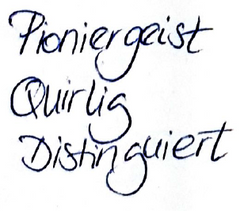 Pioniergeist
Quirlig
Distinguiert